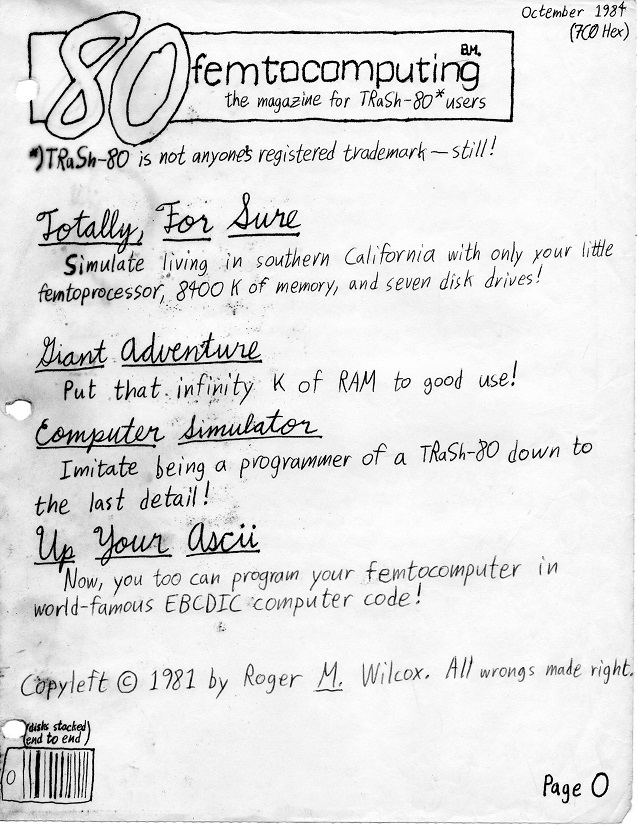 Octember 1984
(7C0 Hex)
80 femtocomputing
B.M.
the magazine for TRaSh-80* users
*) TRaSh-80 is not anyone's registered trademark — still!
Totally, For Sure
Simulate living in southern California with only your little
femtoprocessor, 8400 K of memory, and seven disk drives!
Giant Adventure
Put that infinity K of RAM to good use!
Computer Simulator
Imitate being a programmer of a TRaSh-80 down to
the last detail!
Up Your Ascii
Now, you too can program your femtocomputer in
world-famous EBCDIC computer code!
Copyleft © 1981 by Roger M. Wilcox. All wrongs made right.
(disks stacked
end to end)
0
Page 0